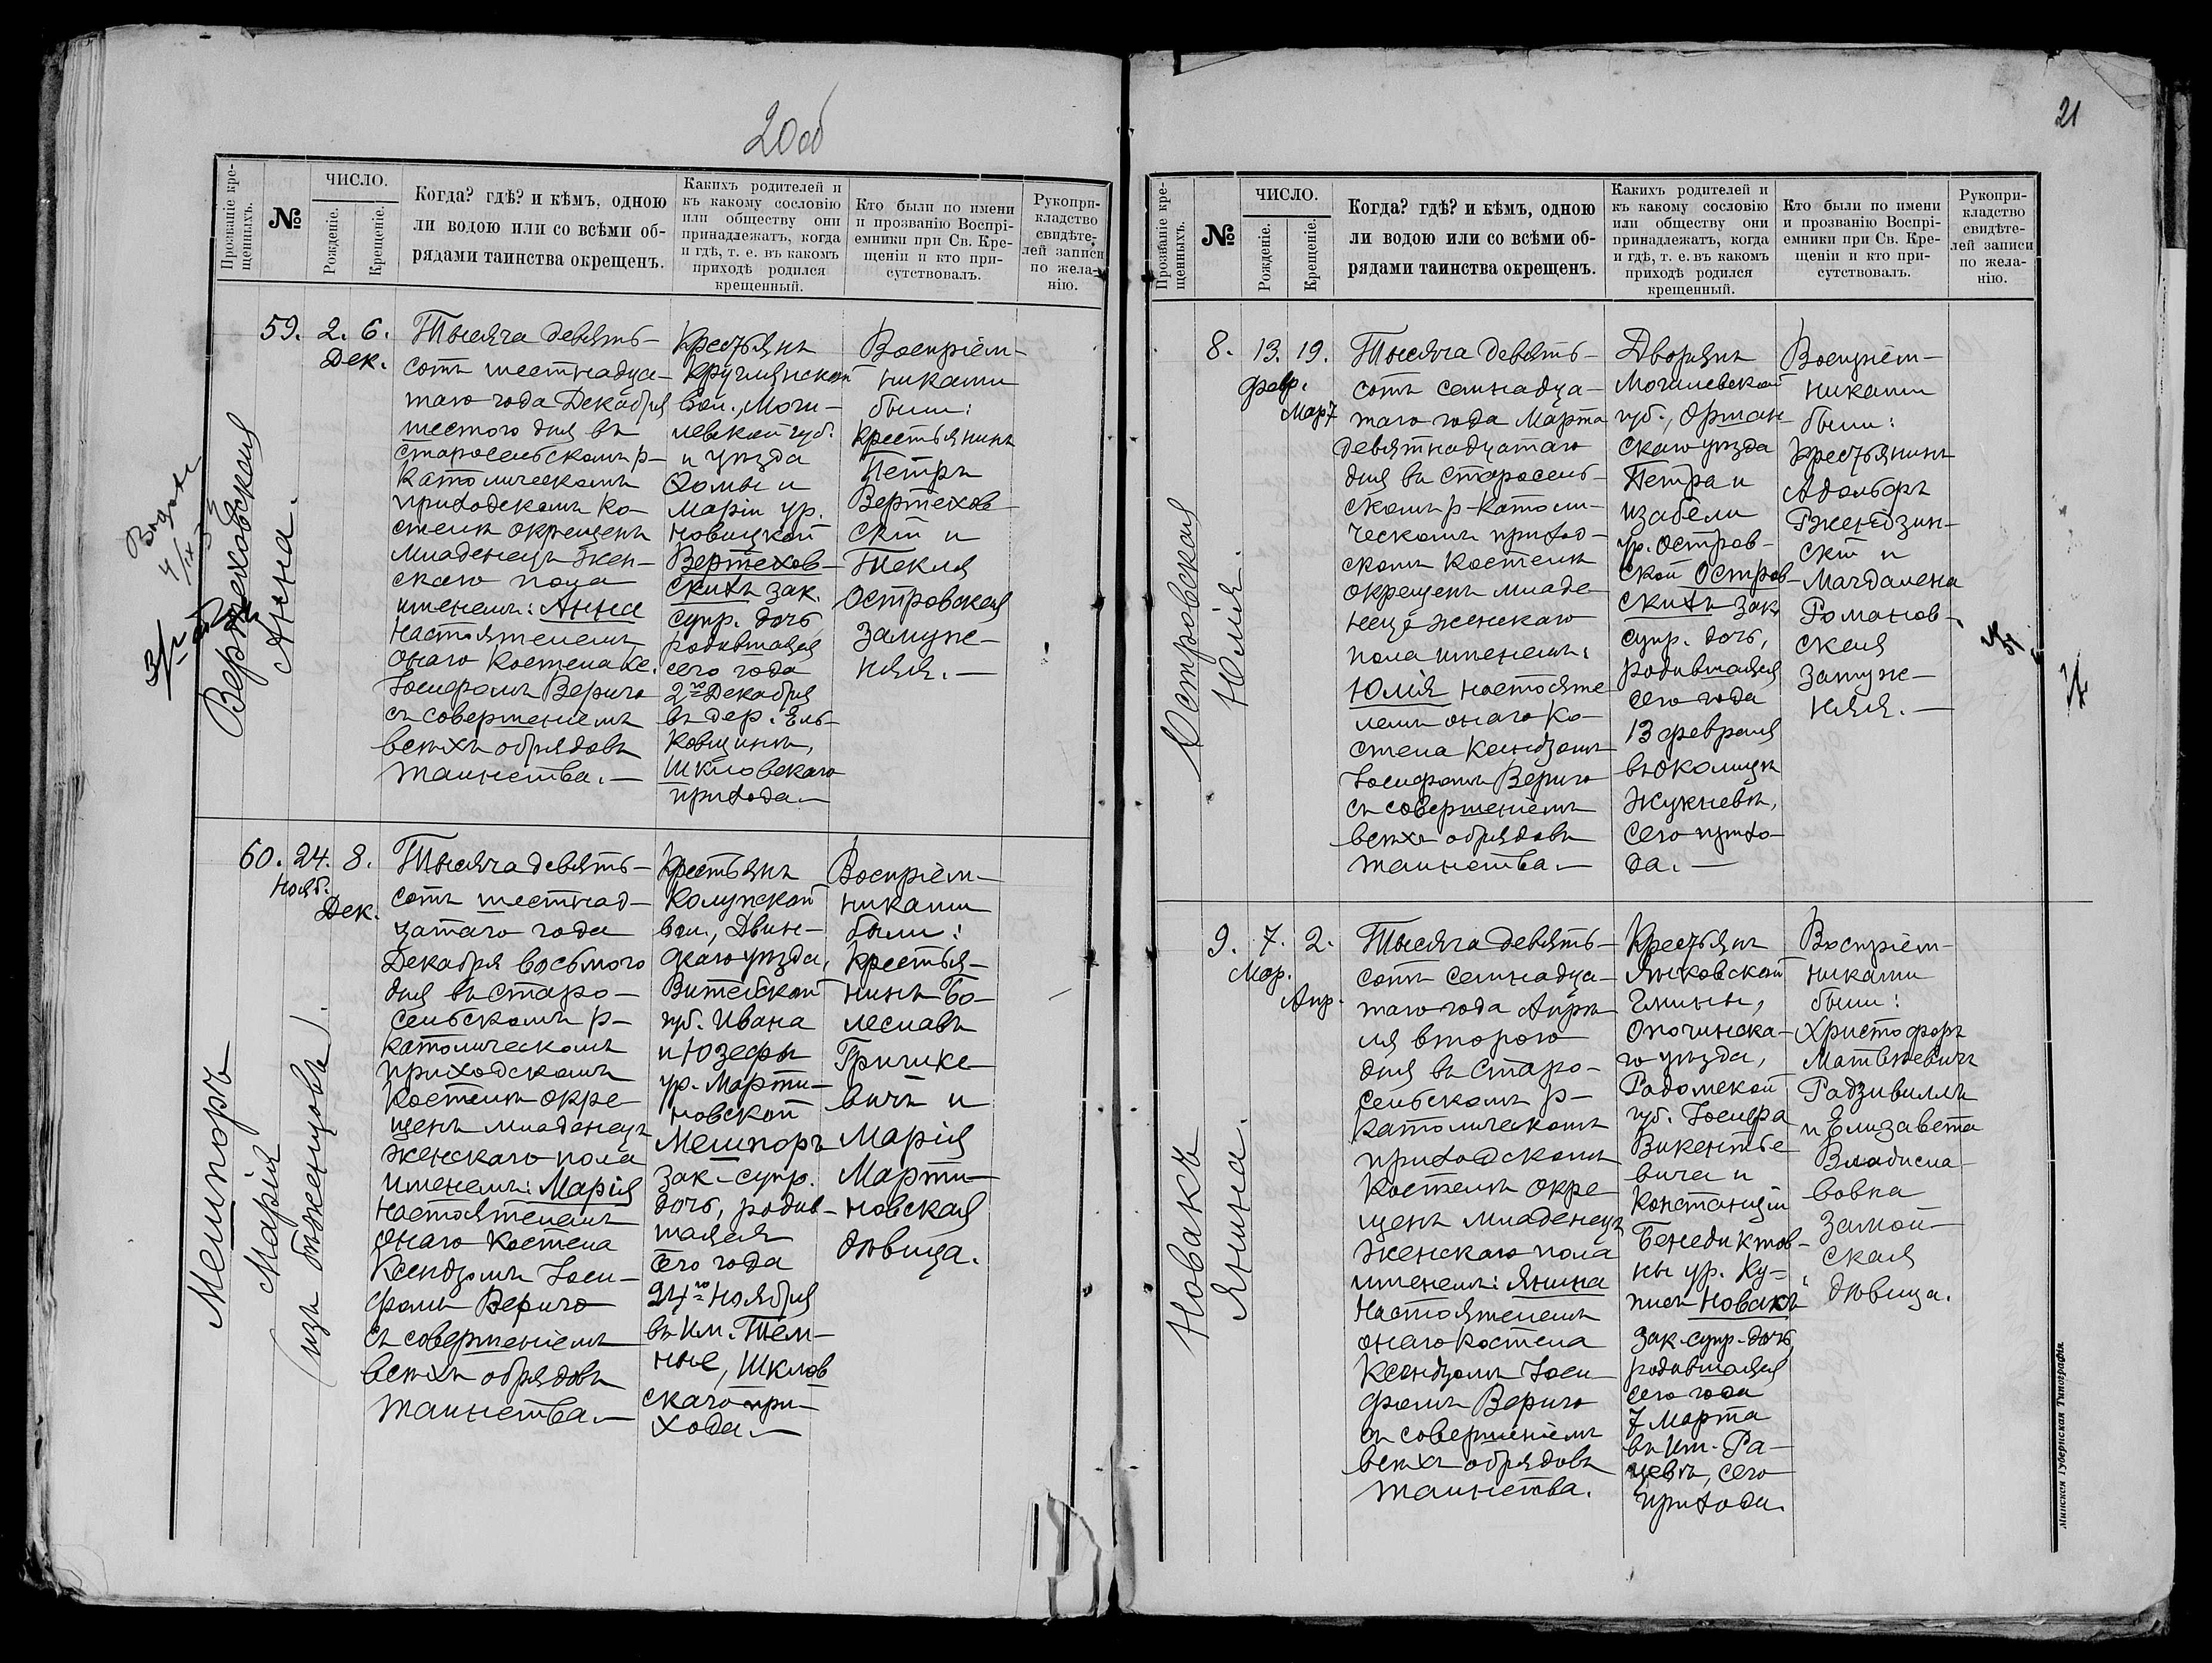 20 об
Прозваніе кре-
щенныхъ.
№
ЧИСЛО.
Рожденіе.
Крещеніе.
Когда? гдѣ? и кѣмъ, одною
ли водою или со всѣми об-
рядами таинства окрещенъ.
Какихъ родителей и
къ какому сословію
или обществу они
принадлежатъ, когда
и гдѣ, т. е. въ какомъ
приходѣ родился
крещенный.
Кто были по имени
и прозванію Воспрі-
емники при Св. Кре-
щеніи и кто при-
сутствовалъ.
Рукопри-
кладство
свидѣте-
лей записи
по жела-
нію.
Вертеховская
Анна.
59.
2. 6.
Дек.
Тысяча девять-
сотъ шестнадца-
таго года Декабря
шестого дня въ
Старосельскомъ р-
католическомъ
приходскомъ ко-
стелѣ окрещенъ
младенецъ жен-
скаго пола
именемъ: Анна
настоятелемъ
онаго костела кс.
Іосифомъ Вериго
съ совершеніемъ
всѣхъ обрядовъ
таинства.—
Крестьянъ
Круглянской
вол., Моги-
левской губ.
и уѣзда
Ѳомы и
Маріи ур.
Новицкой
Вертехов-
скихъ зак.
супр. дочь
родившаяся
сего года
2го Декабря
въ дер. Ель-
ковщинѣ,
Шкловскаго
прихода.—
Воспріем-
никами
были:
крестьянинъ
Петръ
Вертехов-
скій и
Текля
Островская
замуж-
няя.—
Мешпоръ
Марія
(изъ бѣженцовъ).
60.
24. 8.
Нояб.
Дек.
Тысяча девять-
сотъ шестнад-
цатаго года
Декабря восьмого
дня въ Старо-
сельскомъ р-
католическомъ
приходскомъ
костелѣ окре-
щенъ младенецъ
женскаго пола
именемъ: Марія
настоятелемъ
онаго костела
Ксендзомъ Іоси-
фомъ Вериго
съ совершеніемъ
всѣхъ обрядовъ
таинства.—
Крестьянъ
Колупской
вол., Двин-
скаго уѣзда,
Витебской
губ. Ивана
и Юзефы
ур. Марти-
новской
Мешпоръ
зак.-супр.
дочь, родив-
шаяся
сего года
24го Ноября
въ им. Тем-
ные, Шклов
скаго при-
хода.—
Воспріем-
никами
были:
крестья-
нинъ Бо-
леславъ
Гричке-
вичъ и
Марія
Марти-
новская
дѣвица.
21
Прозваніе кре-
щенныхъ.
№
ЧИСЛО.
Рожденіе.
Крещеніе.
Когда? гдѣ? и кѣмъ, одною
ли водою или со всѣми об-
рядами таинства окрещенъ.
Какихъ родителей и
къ какому сословію
или обществу они
принадлежатъ, когда
и гдѣ, т. е. въ какомъ
приходѣ родился
крещенный.
Кто были по имени
и прозванію Воспрі-
емники при Св. Кре-
щеніи и кто при-
сутствовалъ.
Рукопри-
кладство
свидѣте-
лей записи
по жела-
нію.
Островская
Юлія.
8.
13. 19.
Февр.
Март
Тысяча девять-
сотъ семнадца-
таго года Марта
девятнадцатаго
дня въ Старосель-
скомъ р-католи-
ческомъ приход-
скомъ костелѣ
окрещенъ младе-
нецъ женскаго
пола именемъ:
Юлія настояте-
лемъ онаго ко-
стела ксендзомъ
Іосифомъ Вериго
съ совершеніемъ
всѣхъ обрядовъ
таинства.—
Дворянъ
Могилевской
губ., Оршан-
скаго уѣзда
Петра и
Изабели
ур. Остров-
ской Остров-
скихъ зак.
супр. дочь,
родившаяся
сего года
13 февраля
въ околицѣ
Жукневѣ,
сего прихо-
да.—
Воспріем-
никами
были:
крестьянинъ
Адольфъ
Ржендзин-
скій и
Магдалена
Романов-
ская
замуж-
няя.—
Новакъ
Янина.
9.
7. 2.
Мар.
Апр.
Тысяча девять-
сотъ семнадца-
таго года Апрѣ
ля второго
дня въ Старо-
сельскомъ р-
католическомъ
приходскомъ
костелѣ окре
щенъ младенецъ
женскаго пола
именемъ: Янина
настоятелемъ
онаго костела
Ксендзомъ Іоси-
фомъ Вериго
съ совершеніемъ
всѣхъ обрядовъ
таинства.
Крестьянъ
Янковской
гмины,
Опочинска-
го уѣзда,
Радомской
губ. Іосифа
Викентье
вича и
Констанціи
Бенедиктов-
ны ур. Ку-
писъ Новакъ
зак.-супр.-дочь,
родившаяся
сего года
7 марта
въ им. Ра-
цевѣ, сего
прихода.
Воспріем-
никами
были:
Христофоръ
Матвѣевичъ
Радзивиллъ
и Елизавета
Владисла-
вовна
Замой-
ская
дѣвица.
Минская Губернская Типографія.